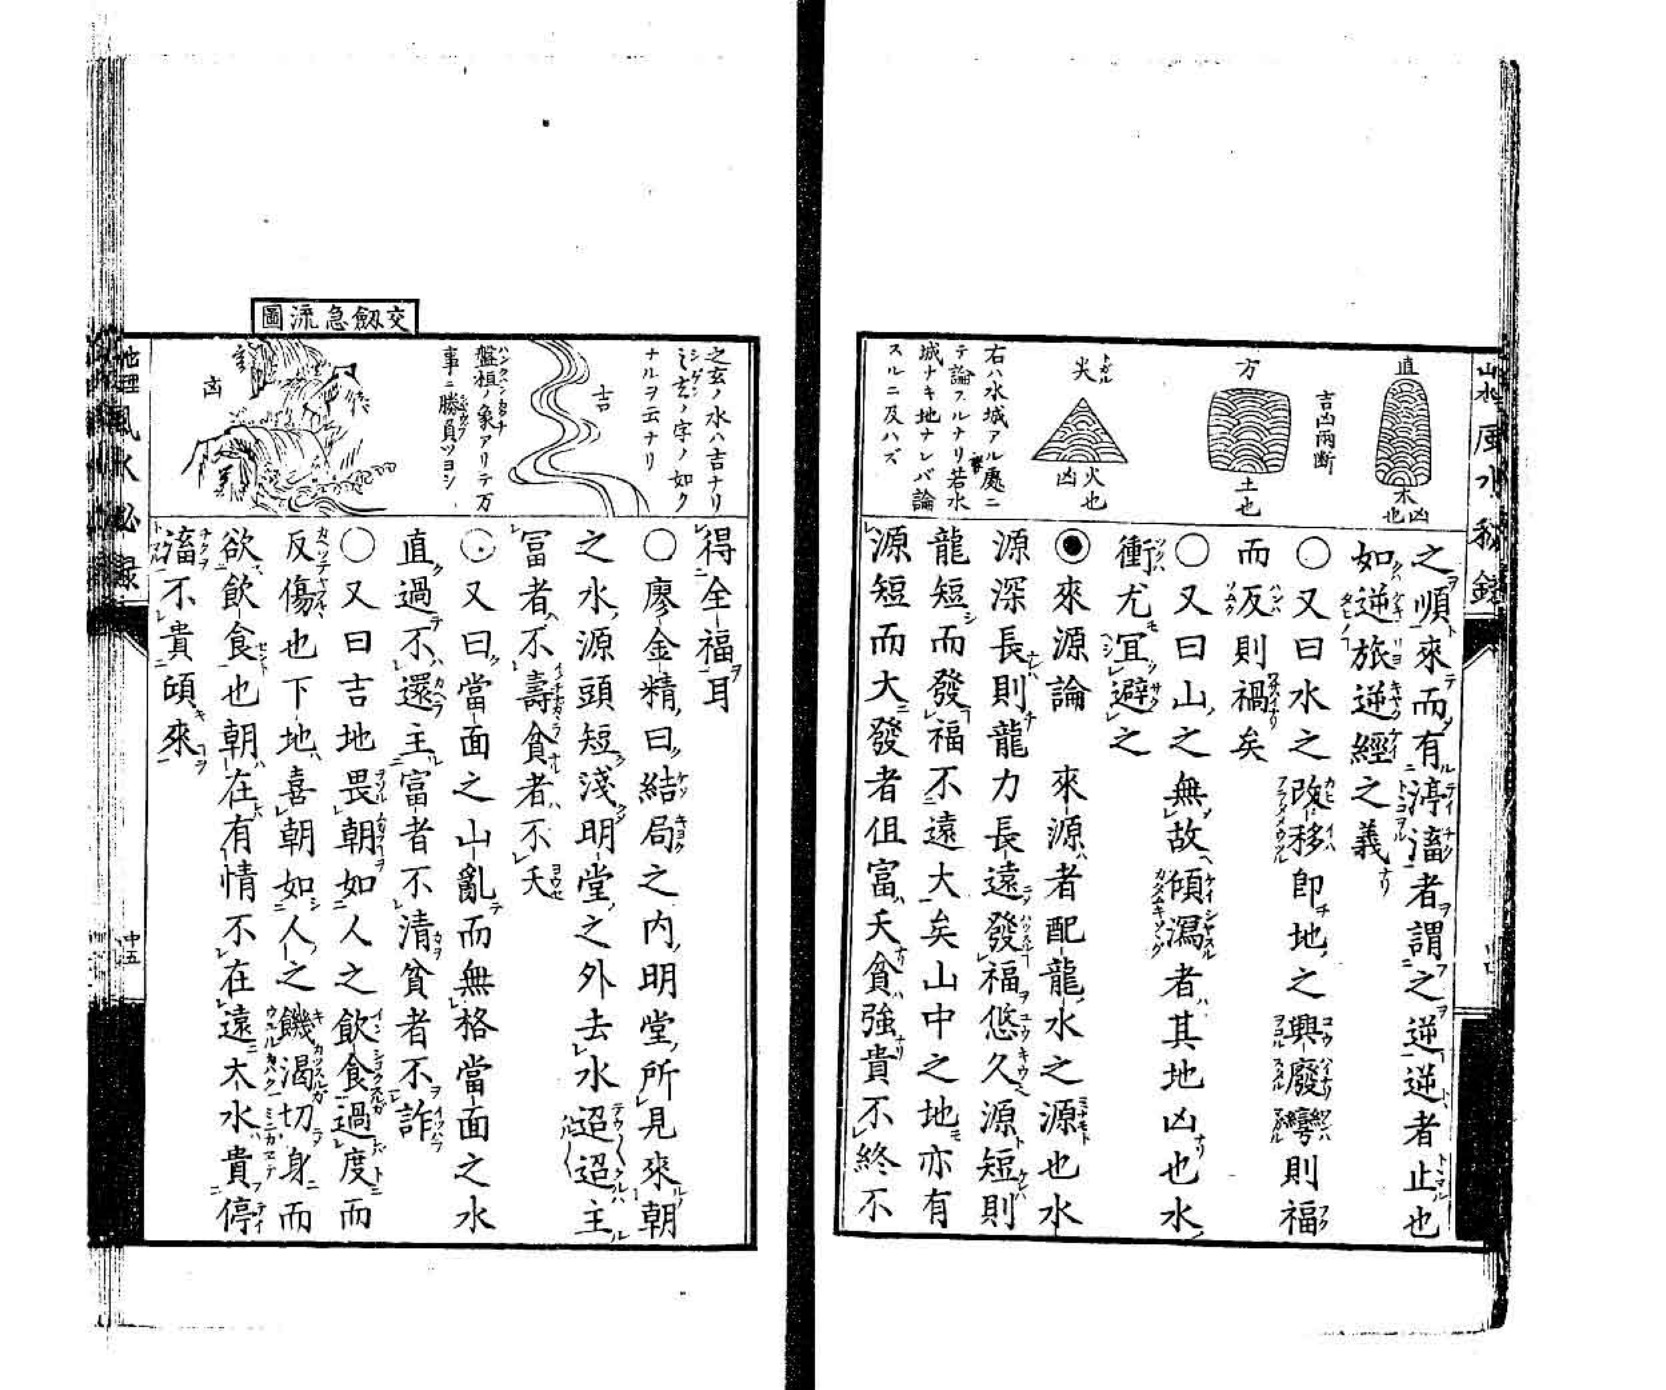 直
木也
凶
吉凶兩断
方
土也
尖
火也
凶
右ハ水城アル處ニ
テ論スルナリ若水
城ナキ地ナレバ論
スルニ及ハズ
之順來而有渟滀者謂之逆逆者止也
如逆旅逆經之義
○又曰水之改移即地之興廢彎則福
而反則禍矣
○又曰山之無故傾瀉者其地凶也水
衝尤宜避之
◉來源論 來源者配龍水之源也水
源深長則龍力長遠發福悠久源短則
龍短而發福不遠大矣山中之地亦有
源短而大發者伹富夭貧強貴不終不
之玄ノ水ハ吉ナリ
之玄ノ字ノ如ク
ナルヲ云ナリ
吉
盤桓ノ象アリテ万
事ニ勝負ツヨシ
交劔急流圖
凶
得全福耳
○廖金精曰結局之内明堂所見來朝
之水源頭短淺明堂之外去水迢迢主
冨者不壽貧者不夭
○又曰當面之山亂而無格當面之水
直過不還主富者不清貧者不詐
○又曰吉地畏朝如人之飲食過度而
反傷也下地喜朝如人之饑渴切身而
欲飲食也朝在有情不在遠大水貴停
滀不貴傾來
地理風水秘録
中五